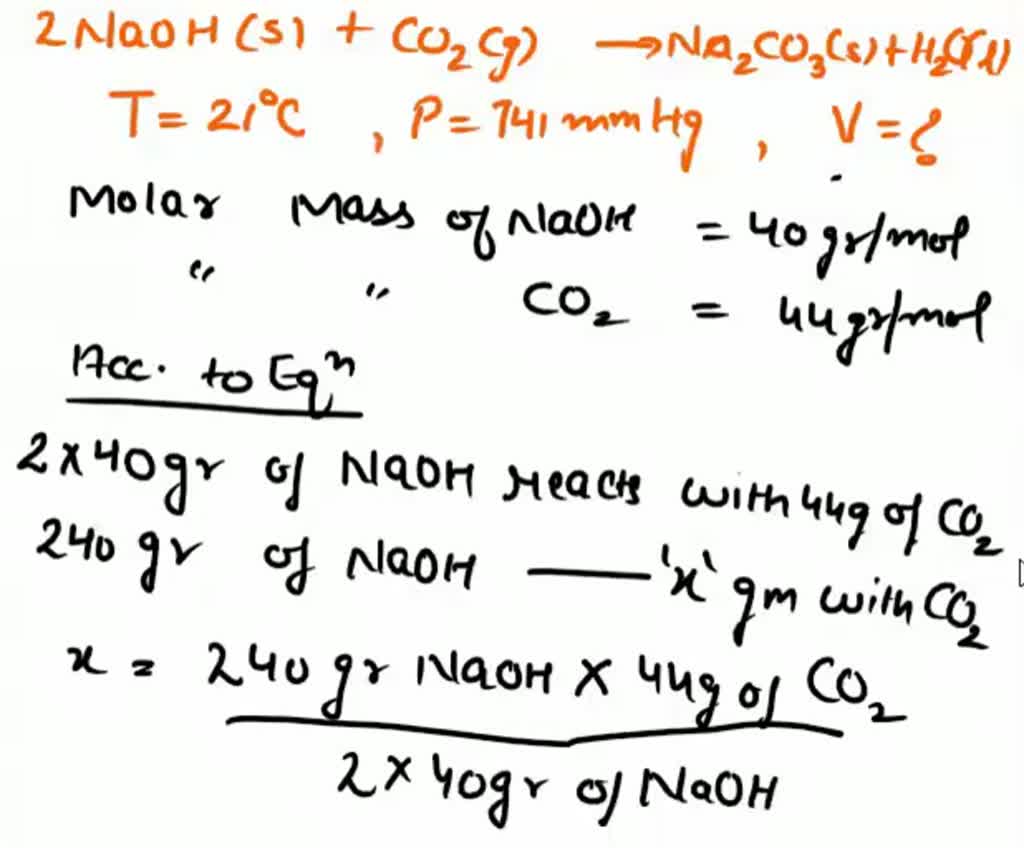 2NaOH(s) + CO₂(g) → Na₂CO₃(s) + H₂O(l)
T = 21°C , P = 741 mm Hg , V = ?
Molar Mass of NaOH = 40 gr/mol
" " CO₂ = 44 gr/mol
Acc. to Eqⁿ
2×40gr of NaOH reacts with 44g of CO₂
240 gr of NaOH — 'x' gm with CO₂
x = 240 gr NaOH × 44g of CO₂
2×40gr of NaOH